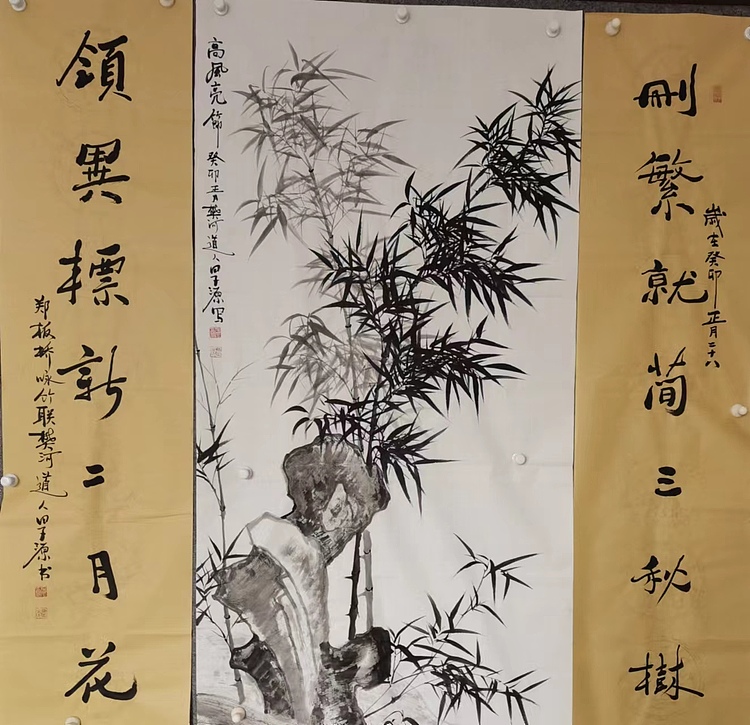 刪繁就簡三秋樹
歲在癸卯正月二十八
高風亮節
癸卯正月樊河道人田子源寫
領異標新二月花
郑板桥咏竹联樊河道人田子源书